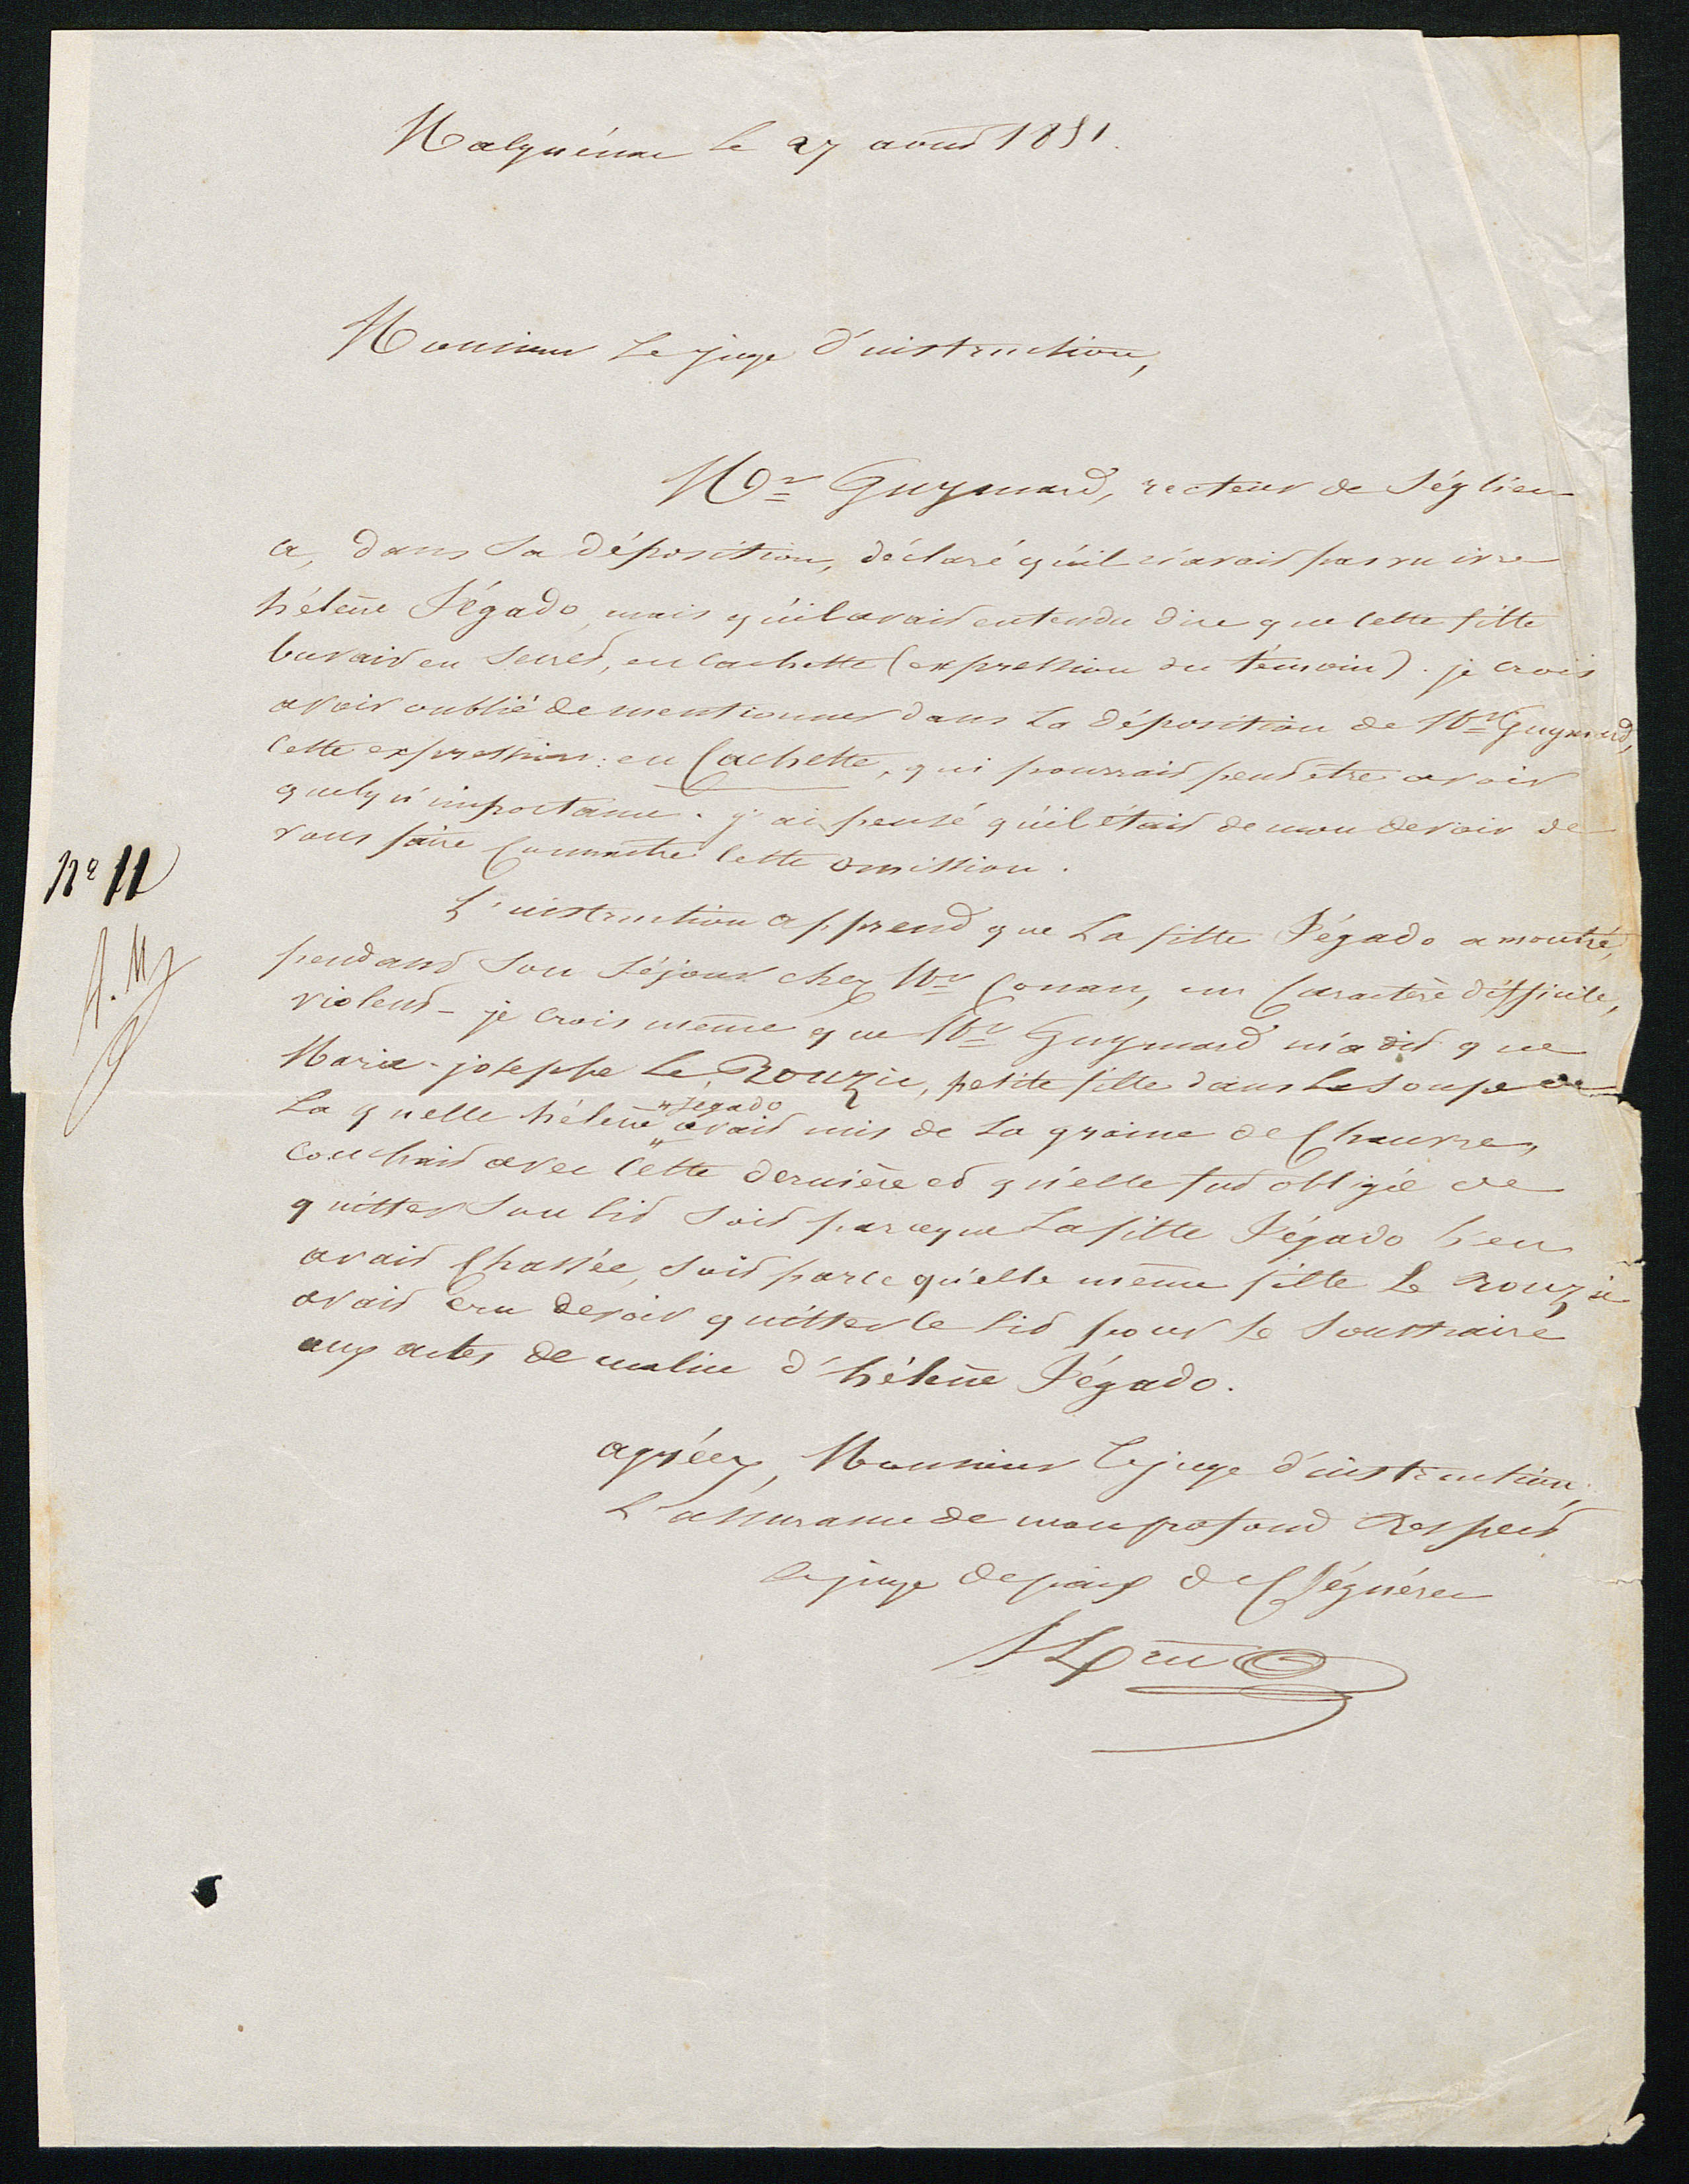 Malguénac le 27 août 1851.
Monsieur Le juge d'instruction,
Mr Guymard, recteur de Séglien
a, dans sa déposition, déclaré qu'il n'avait pas vu ivre
hélène Jégado, mais qu'il avait entendu dire que cette fille
buvait en secret, en cachette (expression du témoin). je crois
avoir oublié de mentionner dans la déposition de Mr Guymard,
cette expression: en Cachette, qui pourrait peut être avoir
quelqu'importance. j'ai pensé qu'il était de mon devoir de
vous faire Connaître cette omission.
L'instruction apprend que La fille Jégado a montré,
pendant son séjour chez Mr Conan, un Caractère difficile,
violent - je crois même que Mr Guymard m'a dit que
Marie-josephe Le Rouzic, petite fille dans la soupe de
La quelle hélène "Jegado" avait mis de la graine de Chanvre,
couchait avec Cette dernière et qu'elle fut obligée de
quitter son lit soit parceque La fille Jégado l'en
avait Chassée, soit parce qu'elle même fille Le Rouzic
avait cru devoir quitter le lit pour se soustraire
aux actes de malice d'hélène Jégado.
agréez, Monsieur Le juge d'instruction,
L'assurance de mon profond Respect
Le juge de paix de Cléguérec
No 11